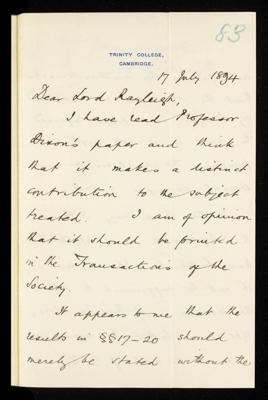 83
TRINITY COLLEGE,
CAMBRIDGE.
17 July 1894
Dear Lord Rayleigh,
I have read Professor
Dixon's paper and think
that it makes a distinct
contribution to the subject
treated. I am of opinion
that it should be printed
in the Transactions of the
Society.
It appears to me that the
results in §§17-20 should
merely be stated without the